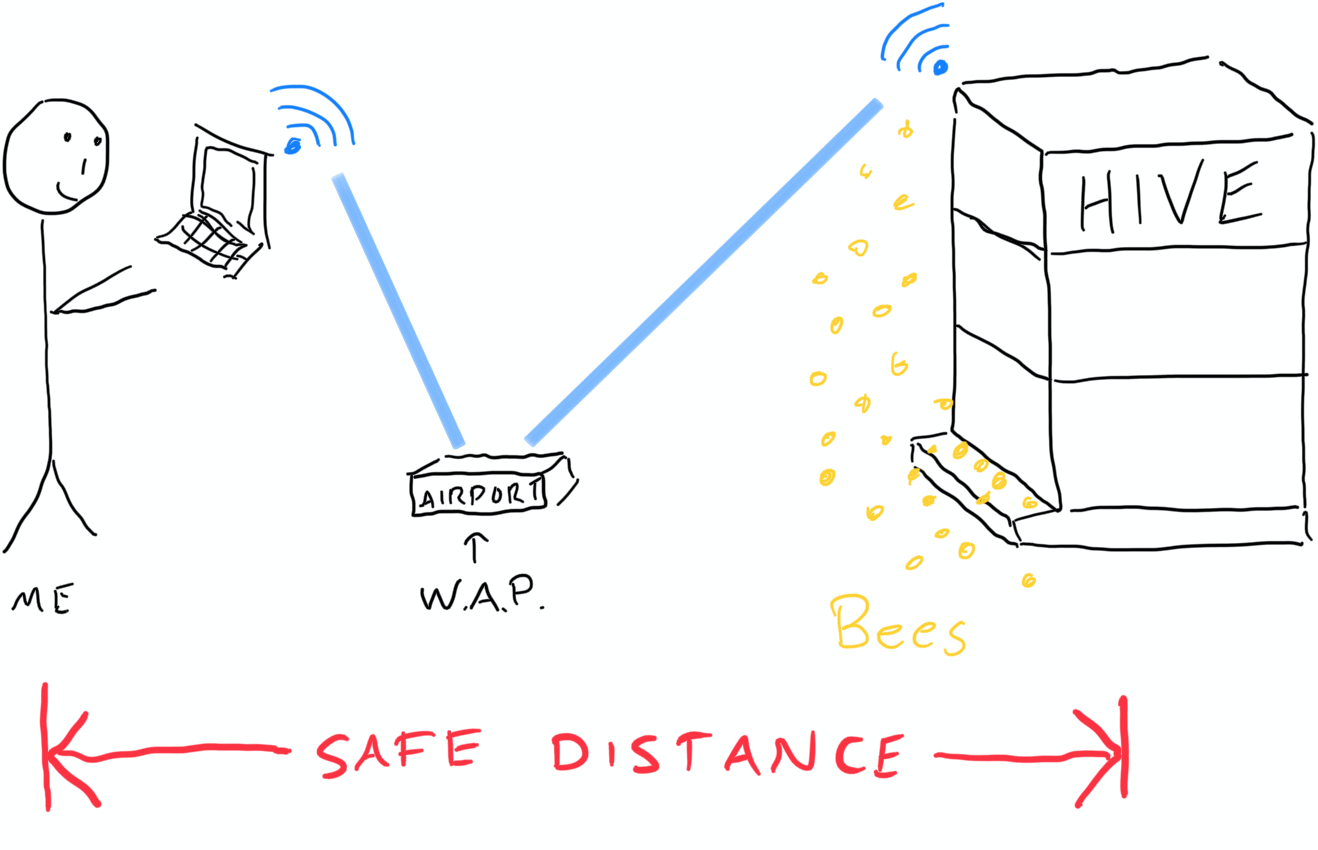 HIVE
AIRPORT
ME
W.A.P.
Bees
SAFE DISTANCE